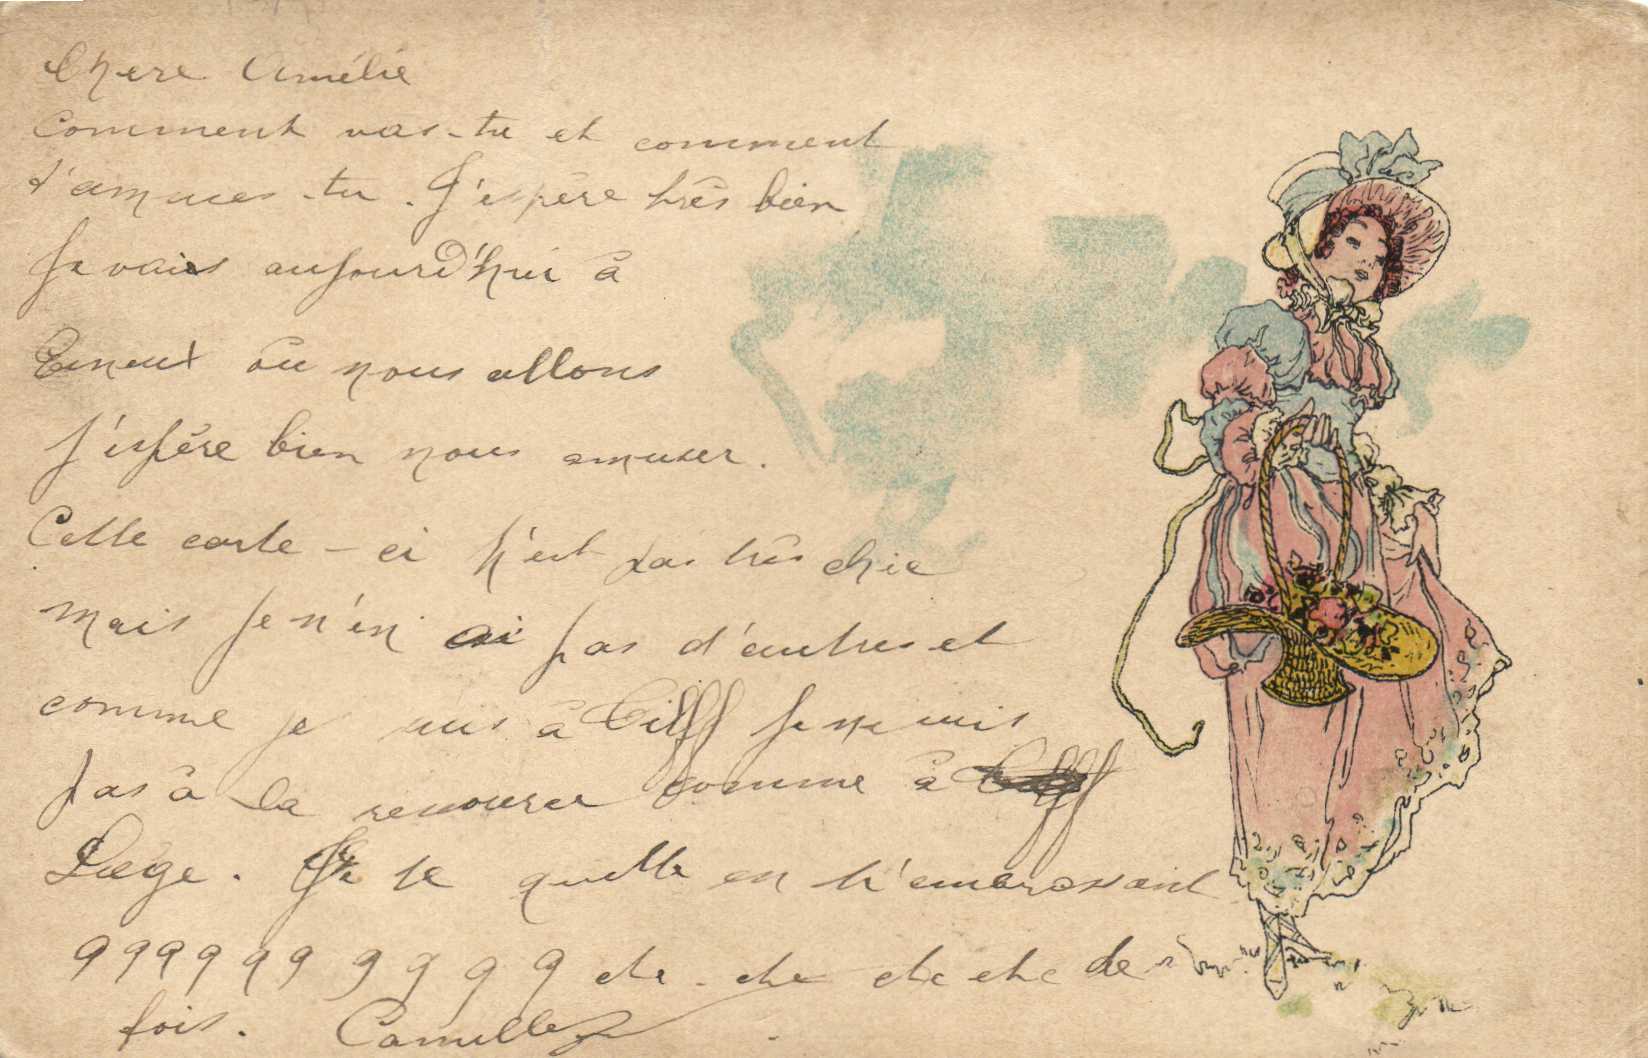 Chere Amélie
Comment vas-tu et comment
t'amuces-tu. J'espère très bien
Je vais aujourd'hui à
Esneux où nous allons
j'espère bien nous amuser.
Cette carte-ci n'est pas très chic
mais je n'en ai pas d'autres et
comme je suis à Tilff je ne suis
pas à la comme à
Liège. Je te quitte en t'embrassant
9999999999 etc. etc etc etc de
fois. Camille